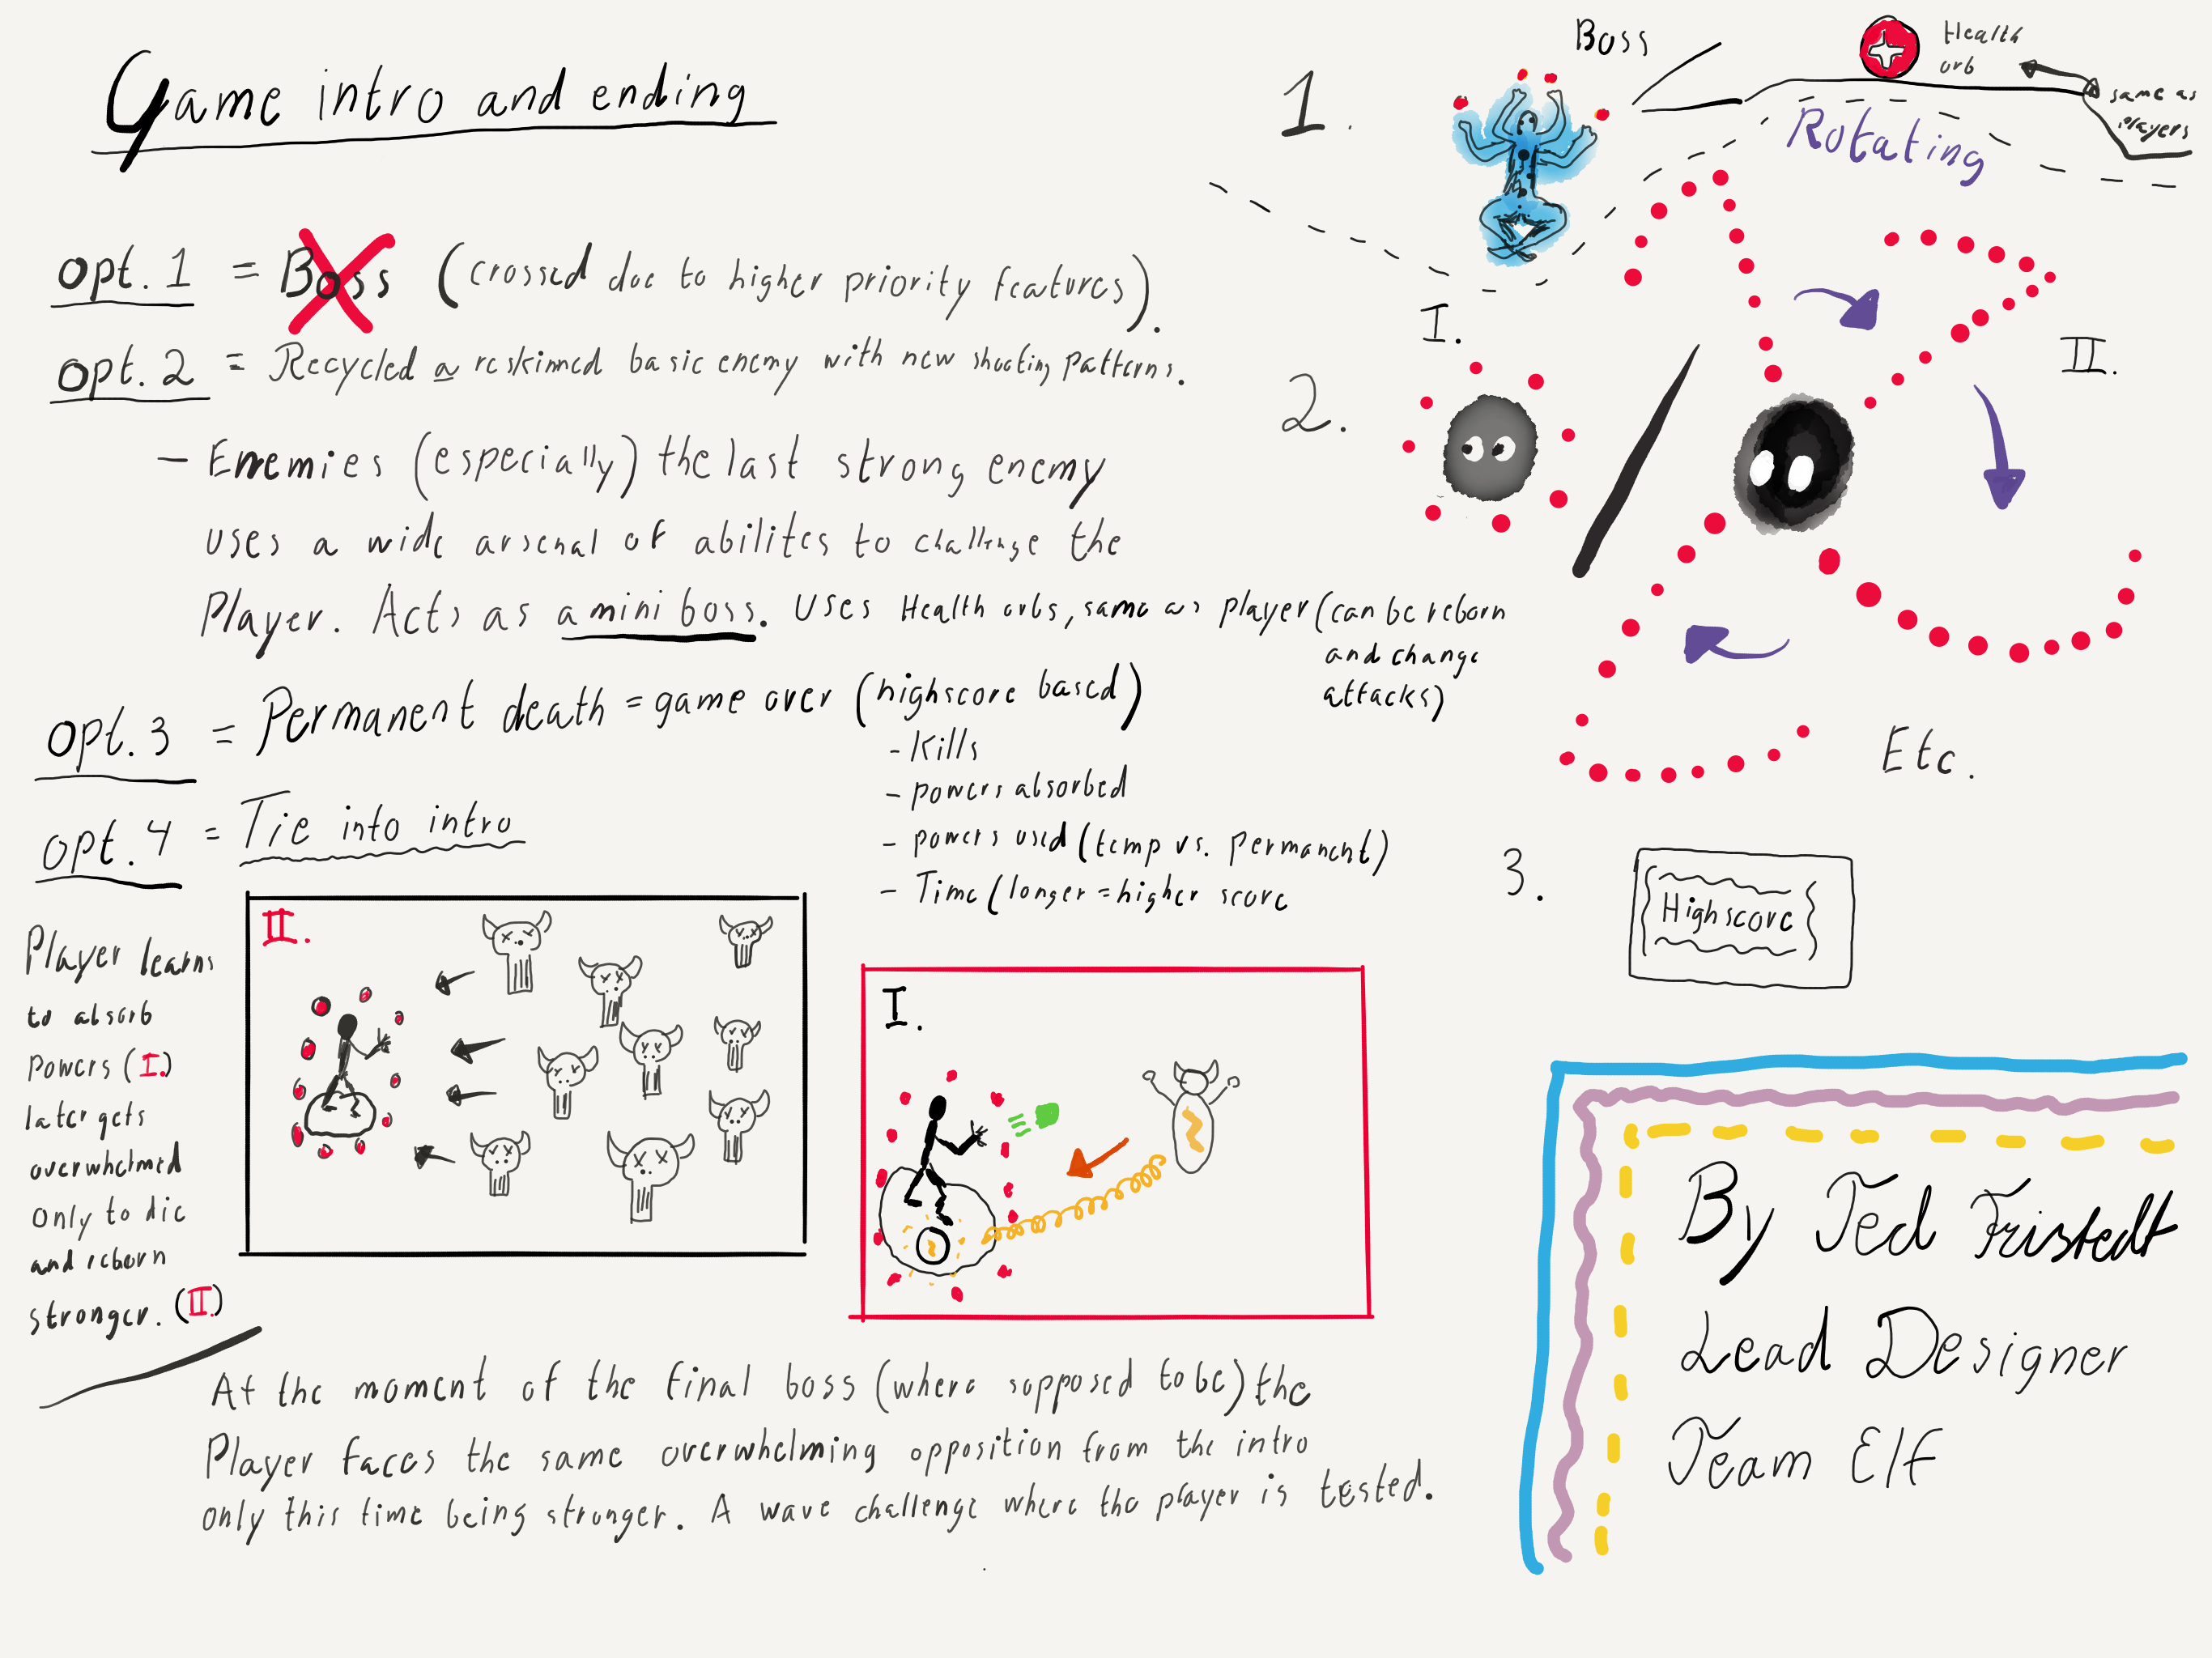 Game intro and ending
opt. 1 = Boss (crossed due to higher priority features).
opt. 2 = Recycled a reskinned basic enemy with new shooting patterns.
- Enemies (especially) the last strong enemy
uses a wide arsenal of abilites to challenge the
Player. Acts as a mini boss. Uses Health orbs, same as player (can be reborn
and change
attacks)
opt. 3 = Permanent death = game over (highscore based)
- kills
- powers absorbed
- powers used (temp vs. permanent)
- Time (longer = higher score
opt. 4 = Tie into intro
Player learns
to absorb
powers (I.)
later gets
overwhelmed
only to die
and reborn
stronger. (II.)
II.
I.
At the moment of the final boss (where sopposed to be) the
Player faces the same overwhelming opposition from the intro
only this time being stronger. A wave challenge where the player is tested.
1.
Boss
Health
orb
same as
players
Rotating
2.
I.
II.
Etc.
3.
Highscore
By Ted Fristedt
Lead Designer
Team Elf